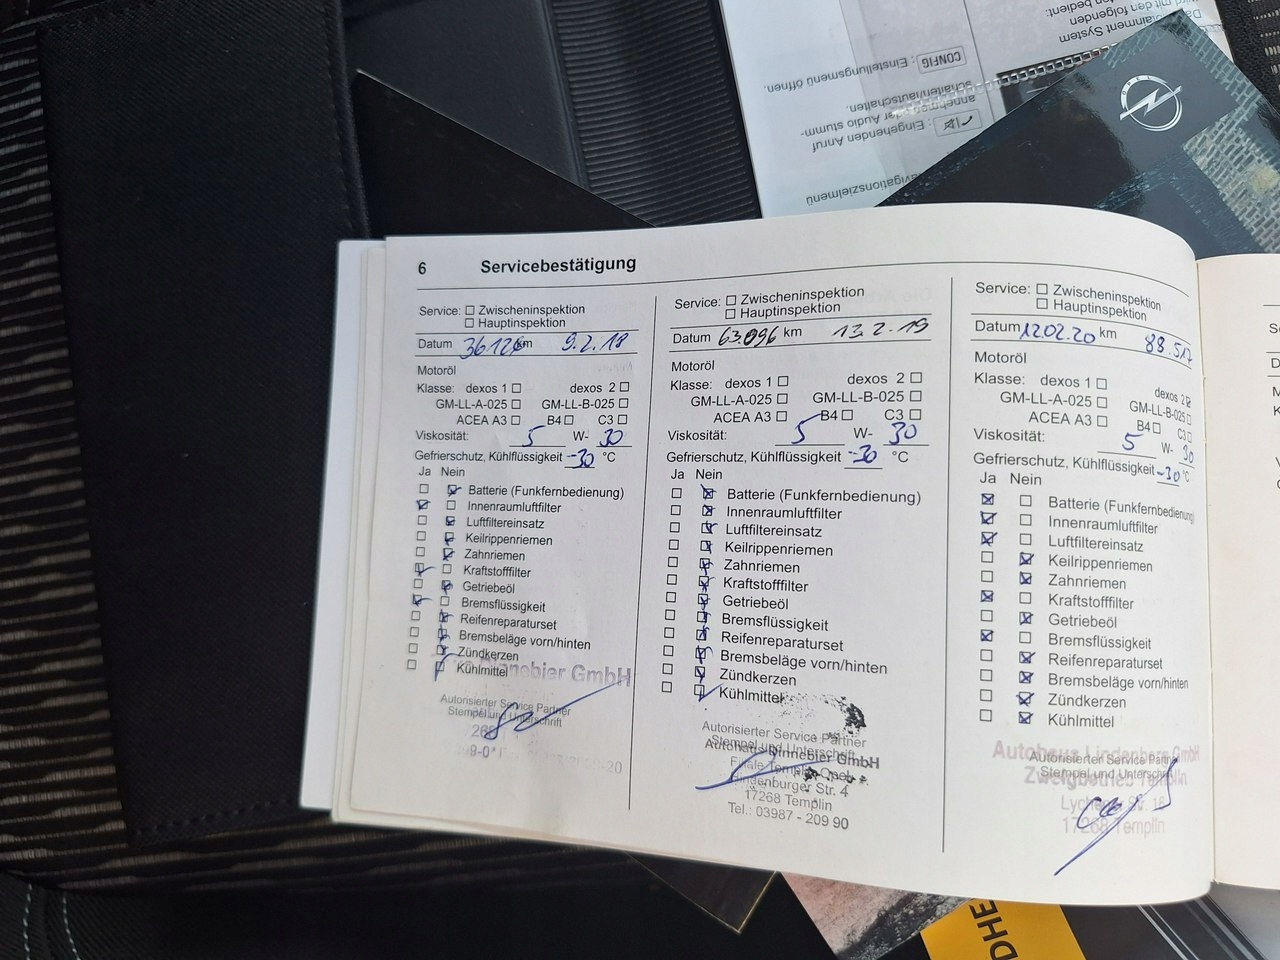 6 Servicebestätigung
Service: ☐ Zwischeninspektion
☐ Hauptinspektion
Datum 36126 km 9.2.18
Motoröl
Klasse: dexos 1 ☐ dexos 2 ☐
GM-LL-A-025 ☐ GM-LL-B-025 ☐
ACEA A3 ☐ B4 ☐ C3 ☐
Viskosität: 5 W- 30
Gefrierschutz, Kühlflüssigkeit -30 °C
Ja Nein
☐ ☒ Batterie (Funkfernbedienung)
☒ ☐ Innenraumluftfilter
☐ ☒ Luftfiltereinsatz
☐ ☒ Keilrippenriemen
☐ ☒ Zahnriemen
☒ ☐ Kraftstofffilter
☐ ☒ Getriebeöl
☒ ☐ Bremsflüssigkeit
☐ ☒ Reifenreparaturset
☐ ☒ Bremsbeläge vorn/hinten
☐ ☒ Zündkerzen
☐ ☒ Kühlmittel
GmbH
Autorisierter Service Partner
Stempel und Unterschrift
Service: ☐ Zwischeninspektion
☐ Hauptinspektion
Datum 63.096 km 13.2.19
Motoröl
Klasse: dexos 1 ☐ dexos 2 ☐
GM-LL-A-025 ☐ GM-LL-B-025 ☐
ACEA A3 ☐ B4 ☐ C3 ☐
Viskosität: 5 W- 30
Gefrierschutz, Kühlflüssigkeit -30 °C
Ja Nein
☐ ☒ Batterie (Funkfernbedienung)
☐ ☒ Innenraumluftfilter
☐ ☒ Luftfiltereinsatz
☐ ☒ Keilrippenriemen
☐ ☒ Zahnriemen
☐ ☒ Kraftstofffilter
☐ ☒ Getriebeöl
☐ ☒ Bremsflüssigkeit
☐ ☒ Reifenreparaturset
☐ ☒ Bremsbeläge vorn/hinten
☐ ☒ Zündkerzen
☐ ☒ Kühlmittel
Autorisierter Service Partner
Stempel und Unterschrift
Autohaus GmbH
Filiale Templin
Str. 4
17268 Templin
Tel.: 03987 - 209 90
Service: ☐ Zwischeninspektion
☐ Hauptinspektion
Datum 12.02.20 km 88.517
Motoröl
Klasse: dexos 1 ☐ dexos 2 ☒
GM-LL-A-025 ☐ GM-LL-B-025 ☐
ACEA A3 ☐ B4 ☐ C3 ☐
Viskosität: 5 W- 30
Gefrierschutz, Kühlflüssigkeit -30 °C
Ja Nein
☒ ☐ Batterie (Funkfernbedienung
☒ ☐ Innenraumluftfilter
☒ ☐ Luftfiltereinsatz
☐ ☒ Keilrippenriemen
☐ ☒ Zahnriemen
☒ ☐ Kraftstofffilter
☐ ☒ Getriebeöl
☒ ☐ Bremsflüssigkeit
☐ ☒ Reifenreparaturset
☐ ☒ Bremsbeläge vorn/hinten
☐ ☒ Zündkerzen
☐ ☒ Kühlmittel
Autohaus Lindenberg GmbH
Autorisierter Service Partn
Zweigbetrieb Templin
Stempel und Unterschrift
17268 Templin
tainment System
den folgenden
bedient:
CONFIG : Einstellungsmenü öffnen.
: Eingehenden Anruf
annehmen oder Audio stumm-
schalten/lautschalten.
avigationszielmenü
OPEL
DHE